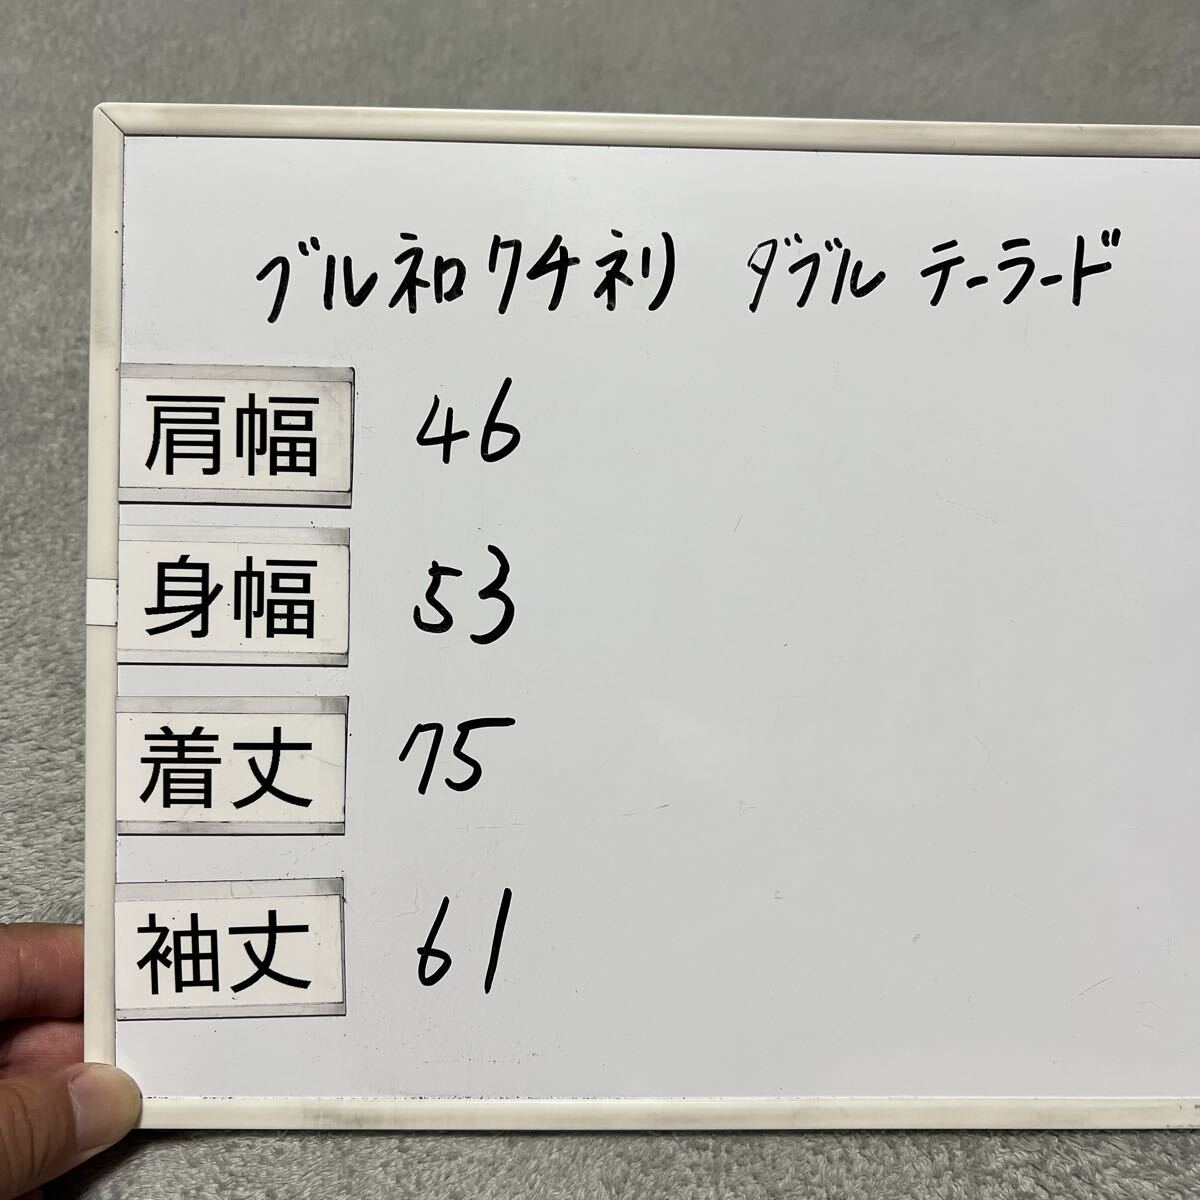 ブルネロクチネリ ダブル テーラード
肩幅 46
身幅 53
着丈 75
袖丈 61